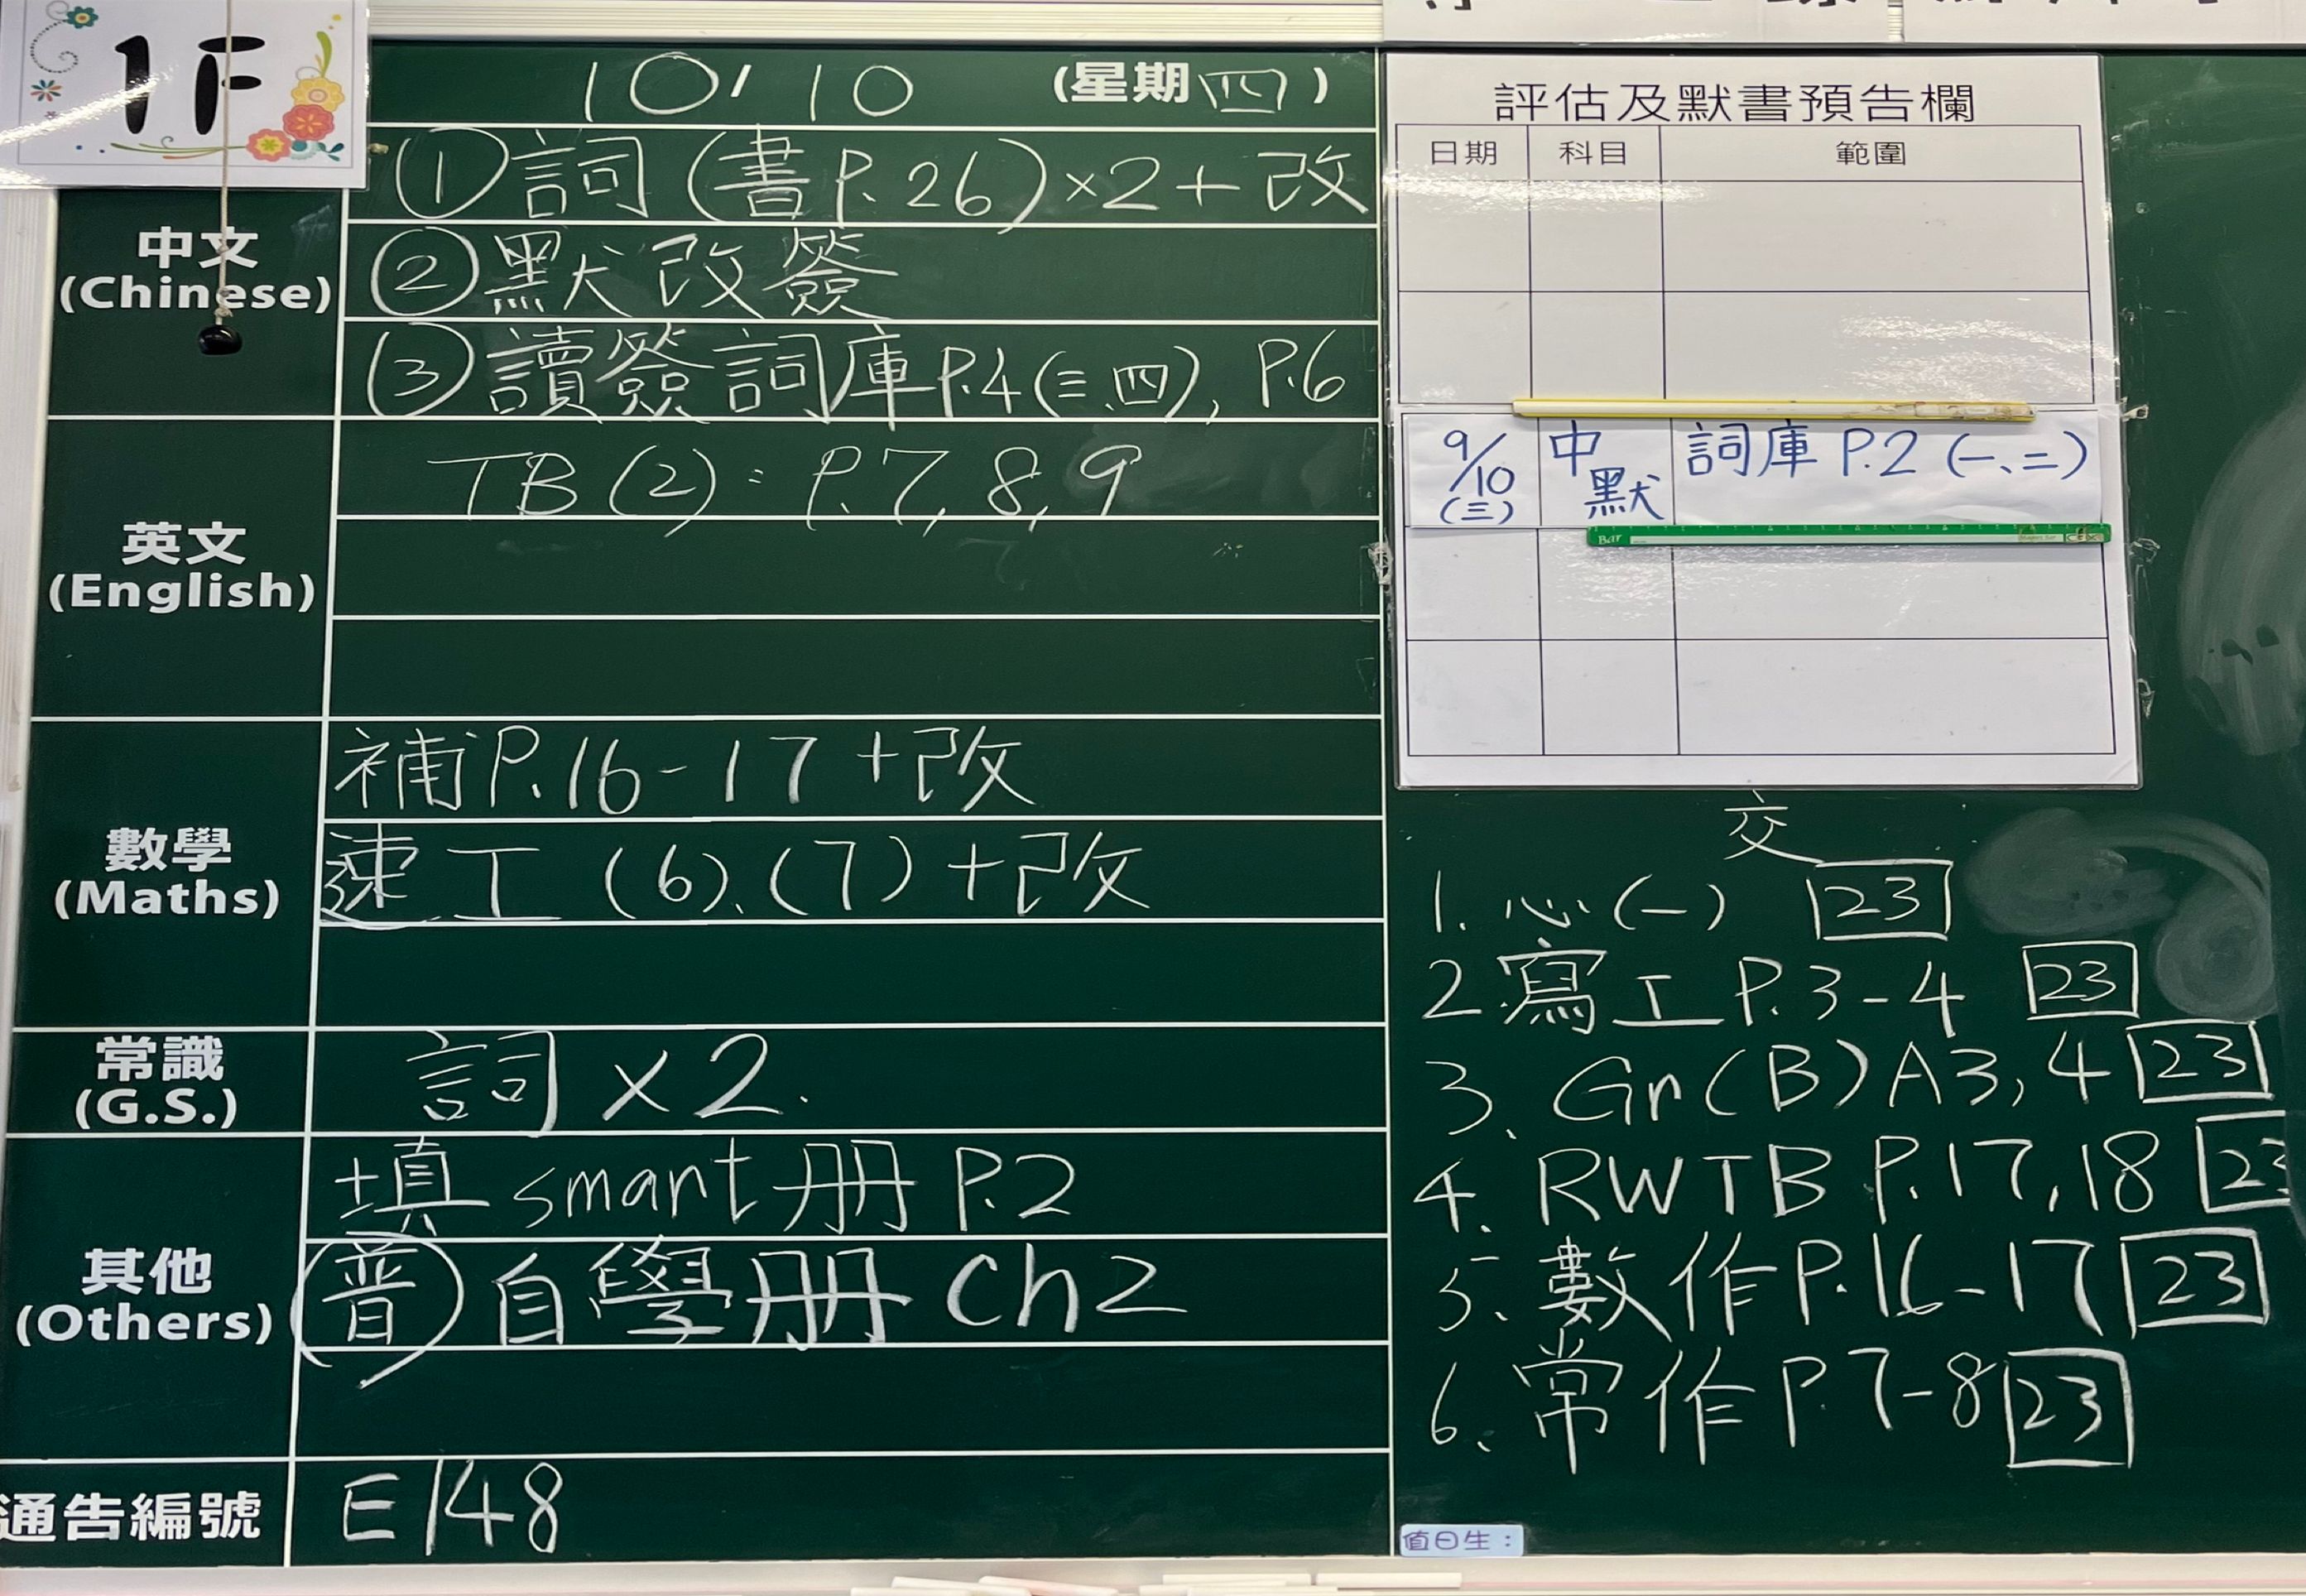 1F
10/10 (星期四)
中文
(Chinese)
①詞(書P.26)×2+改
②默改簽
③讀簽詞庫P.4(三、四), P.6
英文
(English)
TB(2): P.7, 8, 9
數學
(Maths)
補P.16-17+改
速工(6)、(7)+改
常識
(G.S.)
詞×2.
其他
(Others)
填smart册P.2
普 自學册 Ch2
通告編號
E148
評估及默書預告欄
日期 科目 範圍
9/10 (三) 中默 詞庫P.2(一、二)
交
1. 心(一) 23
2. 寫工P.3-4 23
3. Gr(B)A3, 4 23
4. RWTB P.17, 18 23
5. 數作P.16-17 23
6. 常作P.7-8 23
值日生: